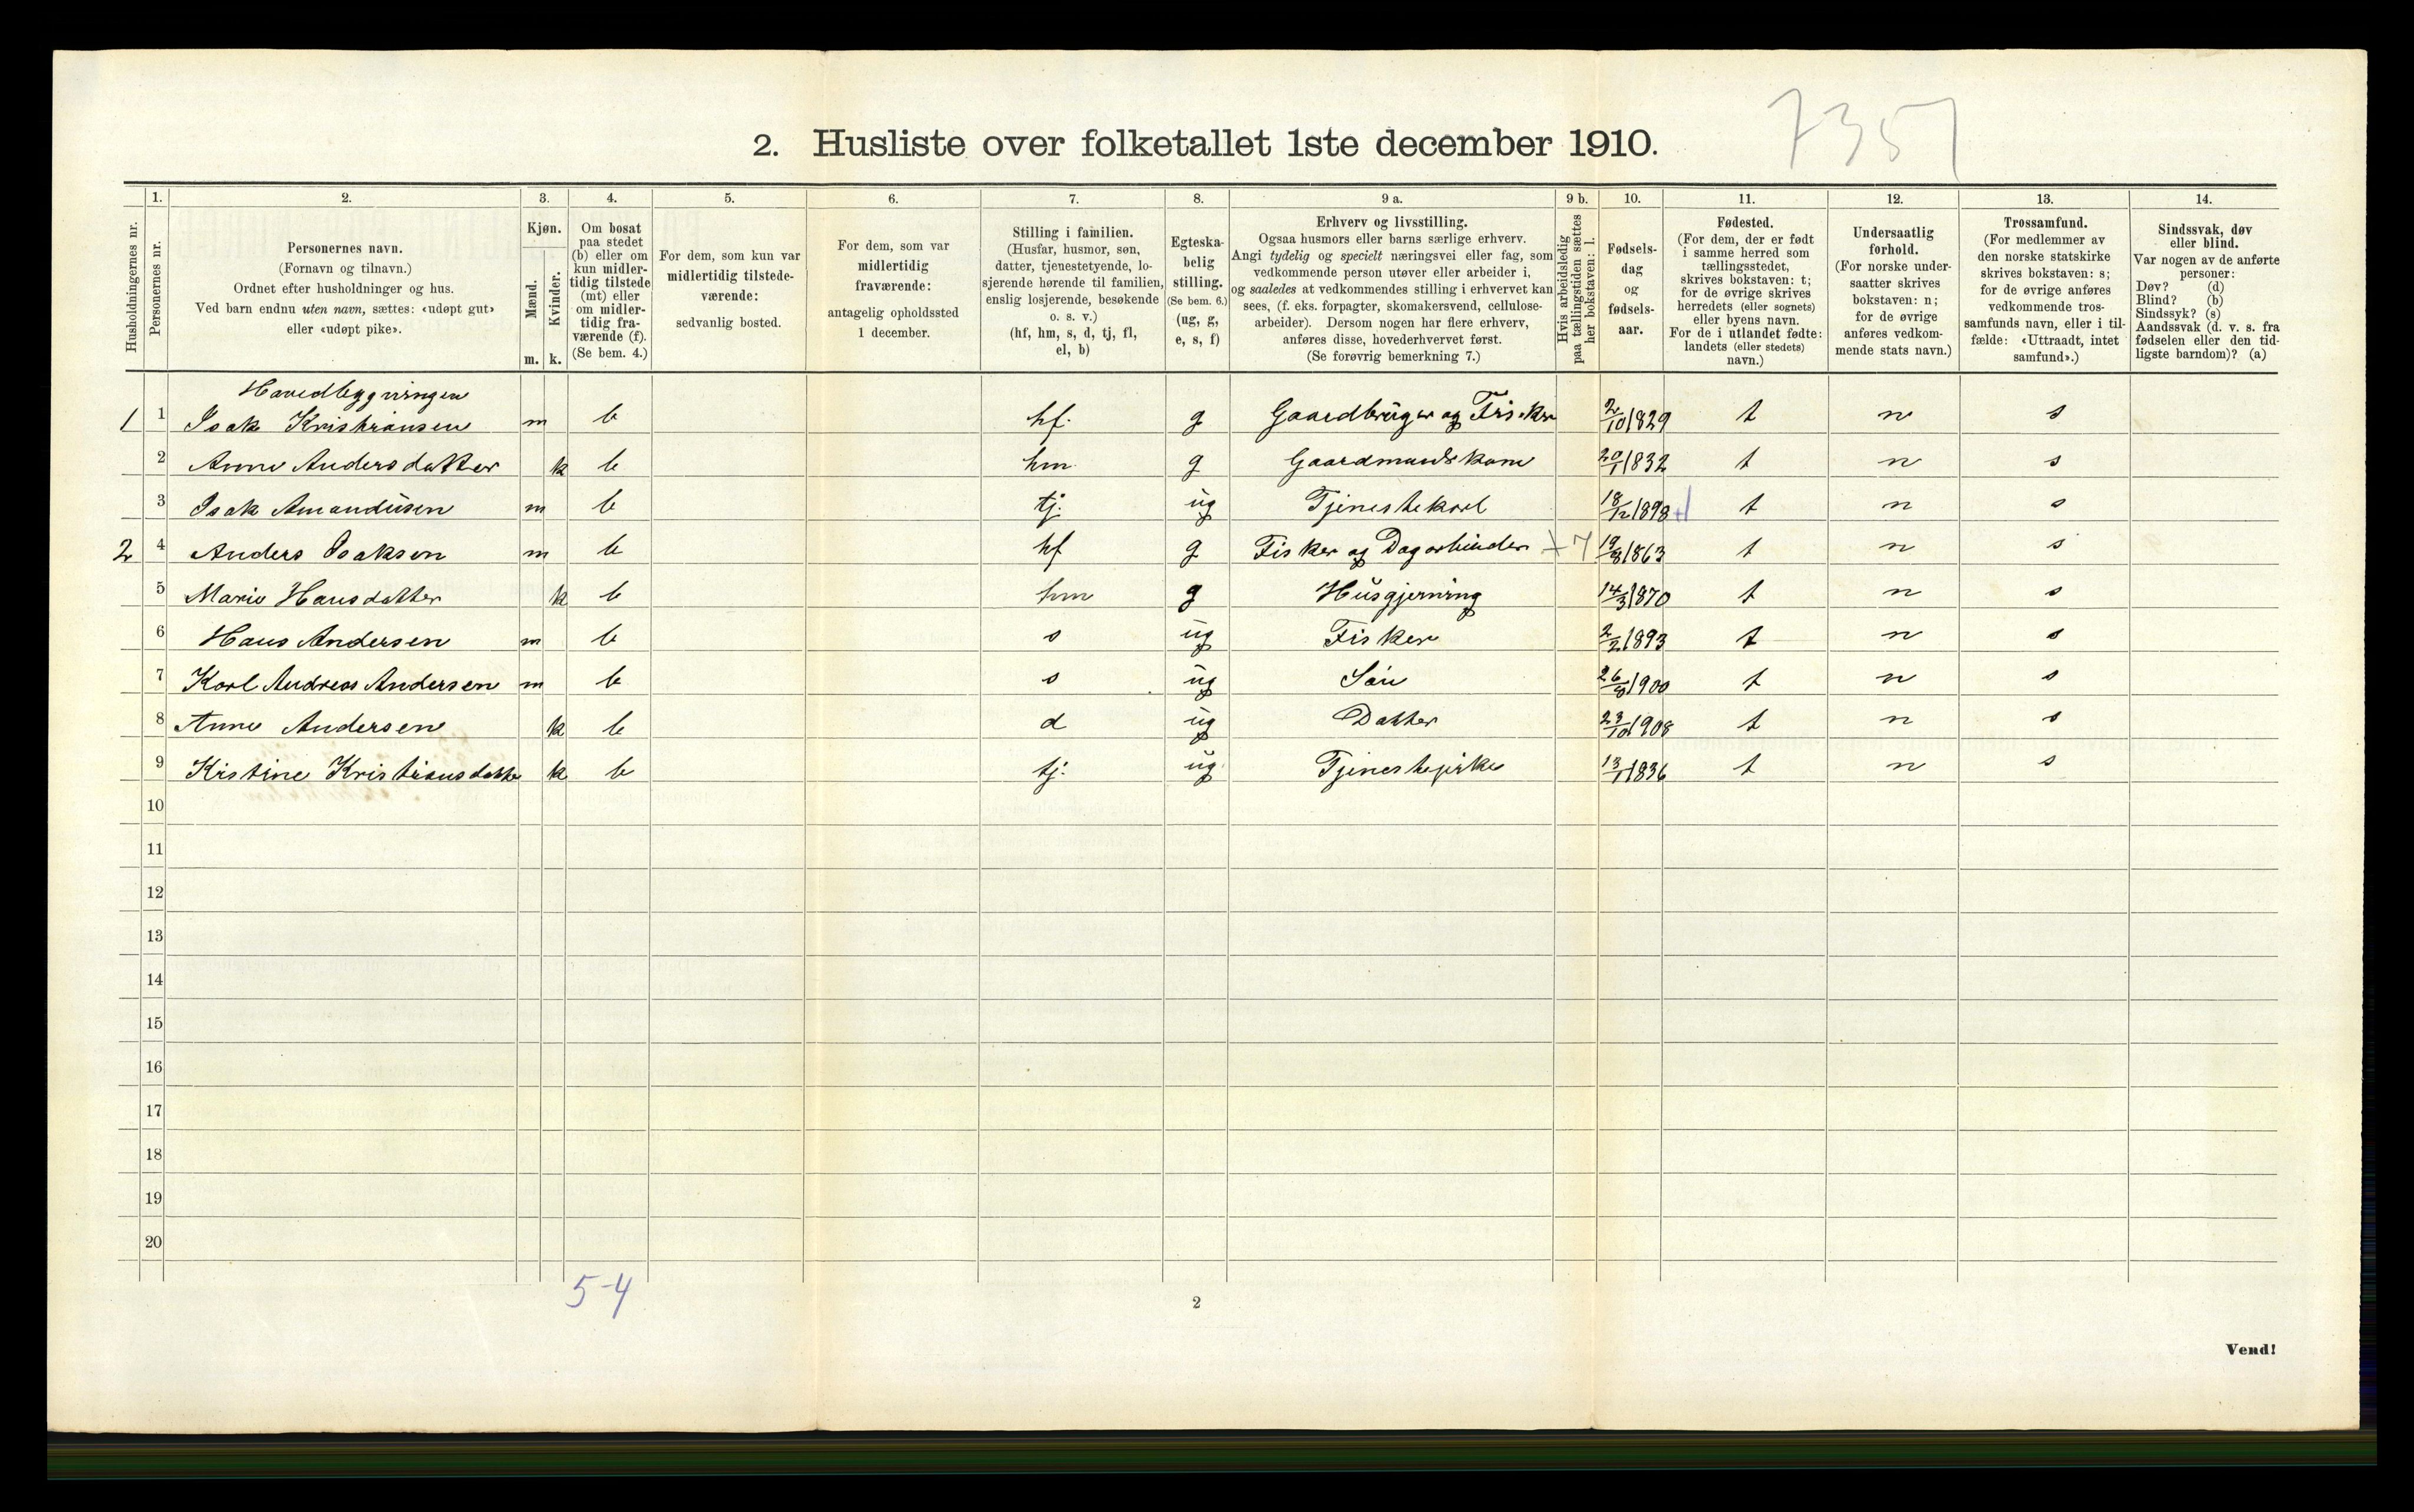 7357
2. Husliste over folketallet 1ste december 1910.
Husholdningernes nr.
1.
Personernes nr.
2.
Personernes navn.
(Fornavn og tilnavn.)
Ordnet efter husholdninger og hus.
Ved barn endnu uten navn, sættes: «udøpt gut»
eller «udøpt pike».
3.
Kjøn.
Mænd.
Kvinder.
m. k.
4.
Om bosat
paa stedet
(b) eller om
kun midler-
tidig tilstede
(mt) eller
om midler-
tidig fra-
værende (f).
(Se bem. 4.)
5.
For dem, som kun var
midlertidig tilstede-
værende:
sedvanlig bosted.
6.
For dem, som var
midlertidig
fraværende:
antagelig opholdssted
1 december.
7.
Stilling i familien.
(Husfar, husmor, søn,
datter, tjenestetyende, lo-
sjerende hørende til familien,
enslig losjerende, besøkende
o. s. v.)
(hf, hm, s, d, tj, fl,
el, b)
8.
Egteska-
belig
stilling.
(Se bem. 6.)
(ug, g,
e, s, f)
9 a.
Erhverv og livsstilling.
Ogsaa husmors eller barns særlige erhverv.
Angi tydelig og specielt næringsvei eller fag, som
vedkommende person utøver eller arbeider i,
og saaledes at vedkommendes stilling i erhvervet kan
sees, (f. eks. forpagter, skomakersvend, cellulose-
arbeider). Dersom nogen har flere erhverv,
anføres disse, hovederhvervet først.
(Se forøvrig bemerkning 7.)
9 b.
Hvis arbeidsledig
paa tællingstiden sættes
her bokstaven: l.
10.
Fødsels-
dag
og
fødsels-
aar.
11.
Fødested.
(For dem, der er født
i samme herred som
tællingsstedet,
skrives bokstaven: t;
for de øvrige skrives
herredets (eller sognets)
eller byens navn.
For de i utlandet fødte:
landets (eller stedets)
navn.)
12.
Undersaatlig
forhold.
(For norske under-
saatter skrives
bokstaven: n;
for de øvrige
anføres vedkom-
mende stats navn.)
13.
Trossamfund.
(For medlemmer av
den norske statskirke
skrives bokstaven: s;
for de øvrige anføres
vedkommende tros-
samfunds navn, eller i til-
fælde: «Uttraadt, intet
samfund».)
14.
Sindssvak, døv
eller blind.
Var nogen av de anførte
personer:
Døv? (d)
Blind? (b)
Sindssyk? (s)
Aandssvak (d. v. s. fra
fødselen eller den tid-
ligste barndom)? (a)
Hovedbygningen
1 1 Isak Kristiansen m b hf. g Gaardbruger og Fisker 2/10 1829 t n s
2 Anne Andersdatter k b hm g Gaardmandskone 20/1 1832 t n s
3 Isak Amandusen m b tj. ug Tjenestekarl 18/12 1898 t n s
2 4 Anders Isaksen m b hf g Fisker og Dagarbeider + 7 19/8 1863 t n s
5 Marie Hansdatter k b hm g Husgjerning 14/3 1870 t n s
6 Hans Andersen m b s ug Fisker 2/2 1893 t n s
7 Karl Andreas Andersen m b s ug Søn 26/8 1900 t n s
8 Anne Andersen k b d ug Datter 23/10 1908 t n s
9 Kistine Kristiansdatter k b tj. ug Tjenestepike 13/1 1836 t n s
10
11
12
13
14
15
16
17
18
19
20
5-4
2
Vend!